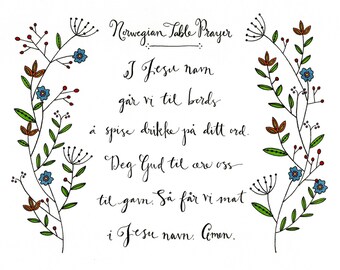 Norwegian Table Prayer
I Jesu navn
går vi til bords
å spise drikke på ditt ord.
Deg Gud til ære oss
til gavn. Så får vi mat
i Jesu navn. Amen.